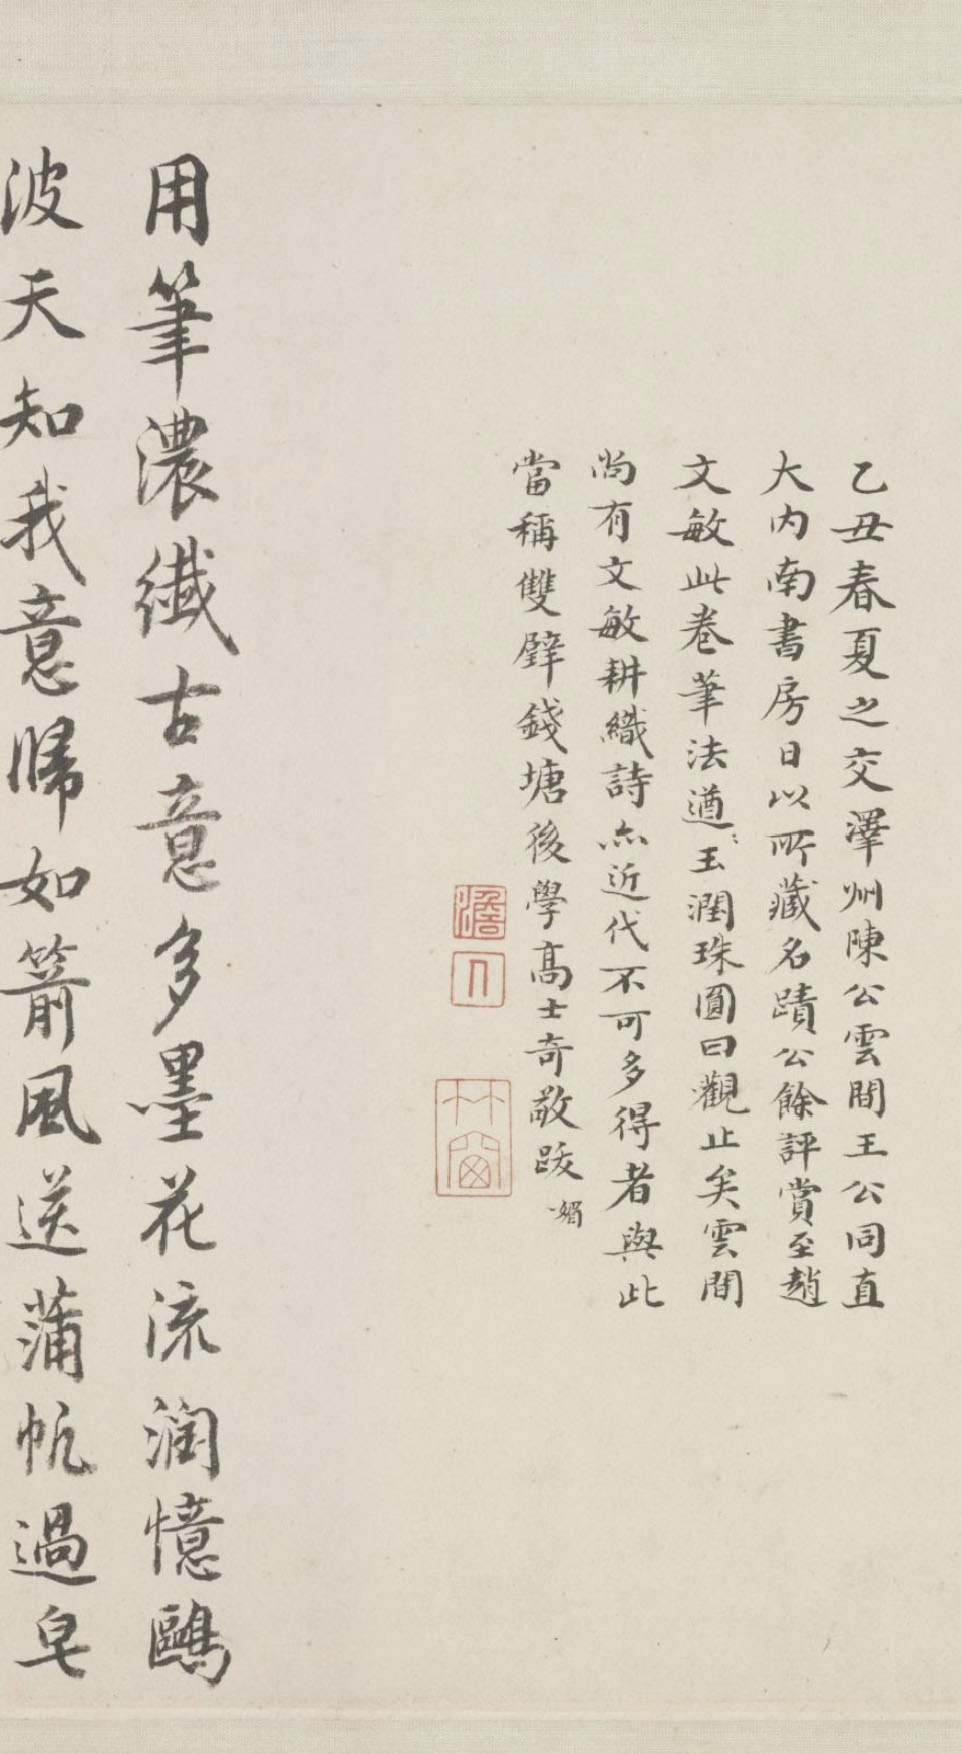 乙丑春夏之交澤州陳公雲間王公同直
大内南書房日以所藏名蹟公餘評賞至趙
文敏此卷筆法遒玉潤珠圓曰觀止矣雲間
尚有文敏耕織詩亦近代不可多得者與此
當稱雙璧錢塘後學高士奇敬跋
媚
澹人
竹窗
用筆濃纖古意多墨花流潤憶鷗
波天知我意歸如箭風送蒲帆過皂